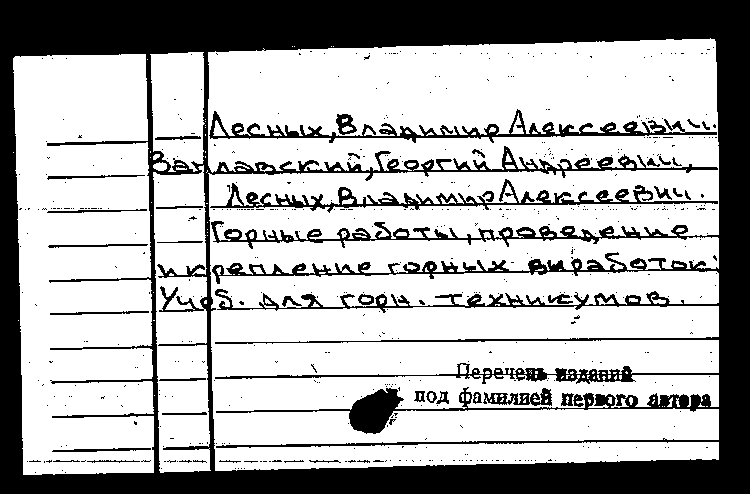 Лесных, Владимир Алексеевич.
Заславский, Георгий Андреевич,
Лесных, Владимир Алексеевич.
Горные работы, проведение
и крепление горных выработок:
Учеб. для горн. техникумов.
Перечень изданий
под фамилией первого автора